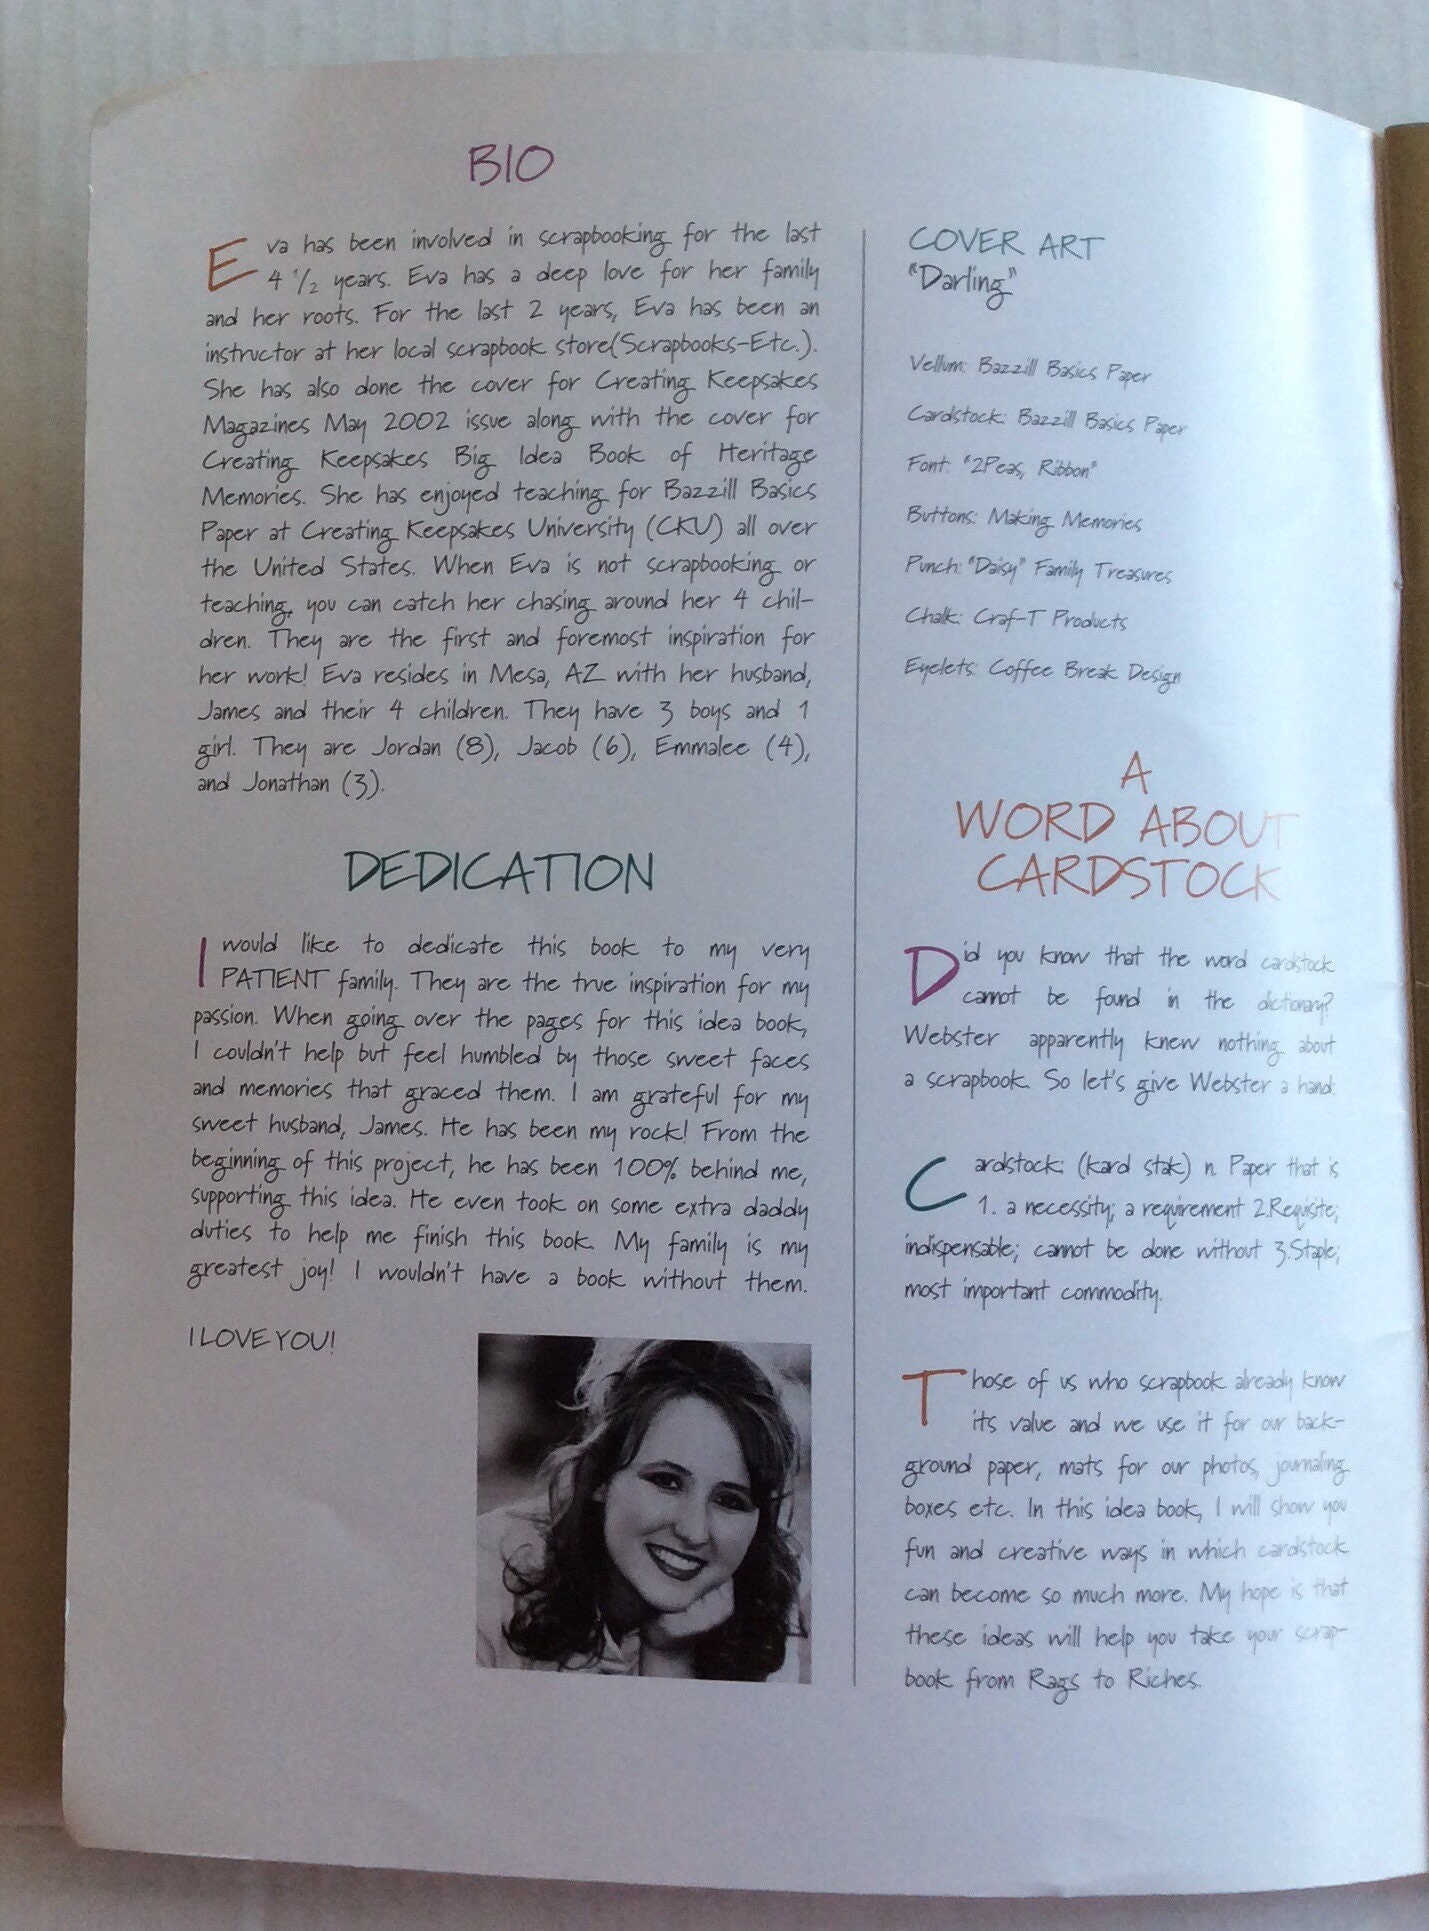 BIO
Eva has been involved in scrapbooking for the last
4 1/2 years. Eva has a deep love for her family
and her roots. For the last 2 years, Eva has been an
instructor at her local scrapbook store(Scrapbooks-Etc.).
She has also done the cover for Creating Keepsakes
Magazines May 2002 issue along with the cover for
Creating Keepsakes Big Idea Book of Heritage
Memories. She has enjoyed teaching for Bazzill Basics
Paper at Creating Keepsakes University (CKU) all over
the United States. When Eva is not scrapbooking or
teaching, you can catch her chasing around her 4 chil-
dren. They are the first and foremost inspiration for
her work! Eva resides in Mesa, AZ with her husband,
James and their 4 children. They have 3 boys and 1
girl. They are Jordan (8), Jacob (6), Emmalee (4),
and Jonathan (3).
DEDICATION
I would like to dedicate this book to my very
PATIENT family. They are the true inspiration for my
passion. When going over the pages for this idea book,
I couldn't help but feel humbled by those sweet faces
and memories that graced them. I am grateful for my
sweet husband, James. He has been my rock! From the
beginning of this project, he has been 100% behind me,
supporting this idea. He even took on some extra daddy
duties to help me finish this book. My family is my
greatest joy! I wouldn't have a book without them.
I LOVE YOU!
COVER ART
"Darling"
Vellum: Bazzill Basics Paper
Cardstock: Bazzill Basics Paper
Font: "2Peas, Ribbon"
Buttons: Making Memories
Punch: "Daisy" Family Treasures
Chalk: Craf-T Products
Eyelets: Coffee Break Design
A
WORD ABOUT
CARDSTOCK
Did you know that the word cardstock
cannot be found in the dictionary?
Webster apparently knew nothing about
a scrapbook. So let's give Webster a hand:
Cardstock: (kard stak) n. Paper that is
1. a necessity; a requirement 2.Requisite;
indispensable; cannot be done without 3.Staple;
most important commodity.
Those of us who scrapbook already know
its value and we use it for our back-
ground paper, mats for our photos, journaling
boxes etc. In this idea book, I will show you
fun and creative ways in which cardstock
can become so much more. My hope is that
these ideas will help you take your scrap-
book from Rags to Riches.